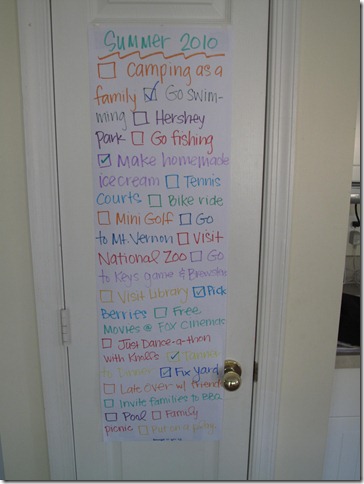 Summer 2010
☐ Camping as a
family ☑ Go swim-
ming ☐ Hershey
Park ☐ Go fishing
☑ Make homemade
icecream ☐ Tennis
Courts ☐ Bike ride
☐ Mini Golf ☐ Go
to Mt. Vernon ☐ Visit
National Zoo ☐ Go
to Keys game &
☐ Visit Library ☑ Pick
Berries ☐ Free
Movies @ Fox Cinemas
☐ Just Dance-a-thon
with ☑
to Dinner ☑ Fix Yard
☐ Late Over w/ friends
☐ Invite families to BBQ
☐ Pool ☐ Family
picnic ☐ Put on a play